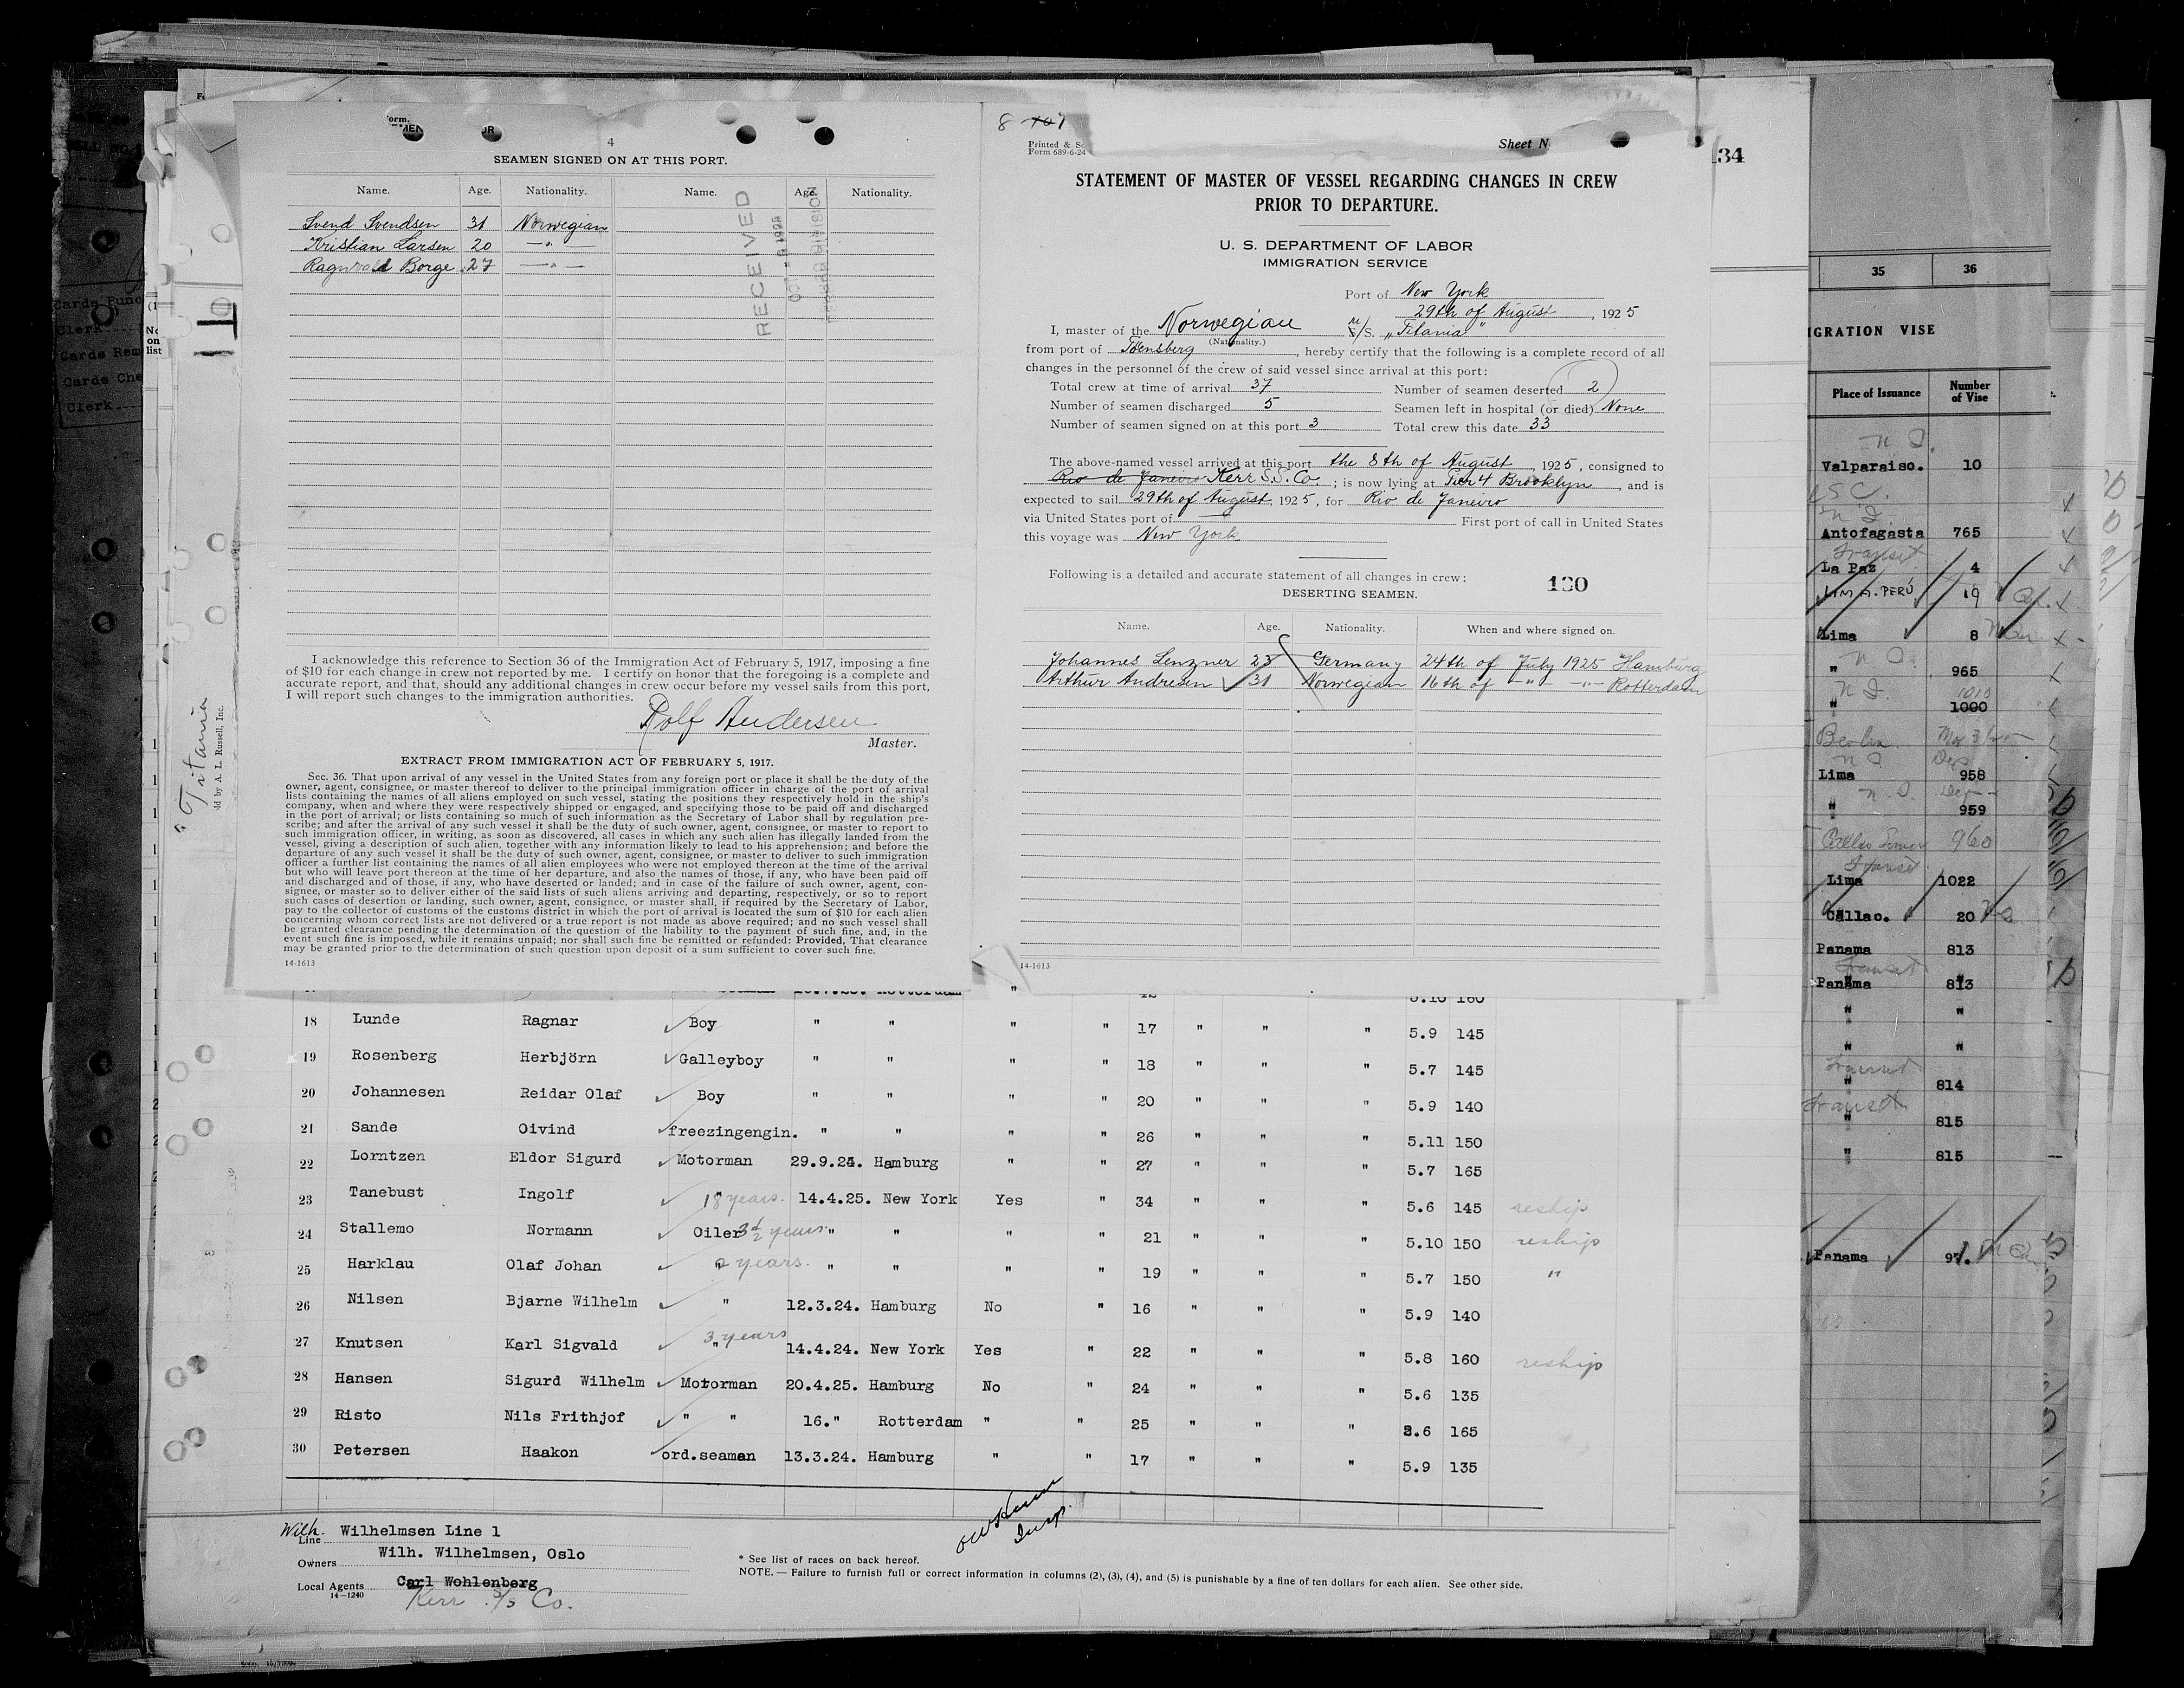 4
SEAMEN SIGNED ON AT THIS PORT.
Name. Age. Nationality. Name. Age. Nationality.
Svend Svendsen 31 Norwegian
Kristian Larsen 20 —"—
Ragnvald Borge 27 —"—
RECEIVED
I acknowledge this reference to Section 36 of the Immigration Act of February 5, 1917, imposing a fine
of $10 for each change in crew not reported by me. I certify on honor that the foregoing is a complete and
accurate report, and that, should any additional changes in crew occur before my vessel sails from this port,
I will report such changes to the immigration authorities.
Rolf Andersen
Master.
EXTRACT FROM IMMIGRATION ACT OF FEBRUARY 5, 1917.
Sec. 36. That upon arrival of any vessel in the United States from any foreign port or place it shall be the duty of the
owner, agent, consignee, or master thereof to deliver to the principal immigration officer in charge of the port of arrival
lists containing the names of all aliens employed on such vessel, stating the positions they respectively hold in the ship's
company, when and where they were respectively shipped or engaged, and specifying those to be paid off and discharged
in the port of arrival; or lists containing so much of such information as the Secretary of Labor shall by regulation pre-
scribe; and after the arrival of any such vessel it shall be the duty of such owner, agent, consignee, or master to report to
such immigration officer, in writing, as soon as discovered, all cases in which any such alien has illegally landed from the
vessel, giving a description of such alien, together with any information likely to lead to his apprehension; and before the
departure of any such vessel it shall be the duty of such owner, agent, consignee, or master to deliver to such immigration
officer a further list containing the names of all alien employees who were not employed thereon at the time of the arrival
but who will leave port thereon at the time of her departure, and also the names of those, if any, who have been paid off
and discharged and of those, if any, who have deserted or landed; and in case of the failure of such owner, agent, con-
signee, or master so to deliver either of the said lists of such aliens arriving and departing, respectively, or so to report
such cases of desertion or landing, such owner, agent, consignee, or master shall, if required by the Secretary of Labor,
pay to the collector of customs of the customs district in which the port of arrival is located the sum of $10 for each alien
concerning whom correct lists are not delivered or a true report is not made as above required; and no such vessel shall
be granted clearance pending the determination of the question of the liability to the payment of such fine, and, in the
event such fine is imposed, while it remains unpaid; nor shall such fine be remitted or refunded: Provided, That clearance
may be granted prior to the determination of such question upon deposit of a sum sufficient to cover such fine.
14-1613
Printed &
Form 689-6-24
Sheet N
STATEMENT OF MASTER OF VESSEL REGARDING CHANGES IN CREW
PRIOR TO DEPARTURE.
U. S. DEPARTMENT OF LABOR
IMMIGRATION SERVICE
Port of New York
29th of August, 1925
I, master of the Norwegian M/S. „Titania"
(Nationality.)
from port of Tönsberg, hereby certify that the following is a complete record of all
changes in the personnel of the crew of said vessel since arrival at this port:
Total crew at time of arrival 37 Number of seamen deserted 2
Number of seamen discharged 5 Seamen left in hospital (or died) None
Number of seamen signed on at this port 3 Total crew this date 33
The above-named vessel arrived at this port the 8th of August, 1925, consigned to
Rio de Janeiro Kerr S.S. Co; is now lying at Pier 4 Brooklyn, and is
expected to sail 29th of August, 1925, for Rio de Janeiro
via United States port of First port of call in United States
this voyage was New York
Following is a detailed and accurate statement of all changes in crew: 130
DESERTING SEAMEN.
Name. Age. Nationality. When and where signed on.
Johannes Lenzner 23 Germany 24th of July 1925 Hamburg
Arthur Andresen 31 Norwegian 16th of —"— —"— Rotterdam
14-1613
34
"Titania"
ld by A. L. Russell, Inc.
18 Lunde Ragnar Boy " " " " 17 " " " 5.9 145
19 Rosenberg Herbjörn Galleyboy " " " " 18 " " " 5.7 145
20 Johannesen Reidar Olaf Boy " " " " 20 " " " 5.9 140
21 Sande Oivind freezingengin. " " " " 26 " " " 5.11 150
22 Lorntzen Eldor Sigurd Motorman 29.9.24. Hamburg " " 27 " " " 5.7 165
23 Tanebust Ingolf " 18 years. 14.4.25. New York Yes " 34 " " " 5.6 145 reship
24 Stallemo Normann Oiler 3½ years " " " " 21 " " " 5.10 150 reship
25 Harklau Olaf Johan " 2 years. " " " " 19 " " " 5.7 150 "
26 Nilsen Bjarne Wilhelm " 12.3.24. Hamburg No " 16 " " " 5.9 140
27 Knutsen Karl Sigvald " 3 years 14.4.24. New York Yes " 22 " " " 5.8 160 reship
28 Hansen Sigurd Wilhelm Motorman 20.4.25. Hamburg No " 24 " " " 5.6 135
29 Risto Nils Frithjof " " 16." Rotterdam " " 25 " " " 6 165
30 Petersen Haakon ord.seaman 13.3.24. Hamburg " " 17 " " " 5.9 135
Wilh. Wilhelmsen Line 1
Line
Owners Wilh. Wilhelmsen, Oslo
Local Agents Carl Wohlenberg
14-1240
Kerr S/S Co.
Insp.
* See list of races on back hereof.
NOTE. — Failure to furnish full or correct information in columns (2), (3), (4), and (5) is punishable by a fine of ten dollars for each alien. See other side.
35 36
IGRATION VISE
Place of Issuance Number of Vise
Valparaiso. 10
Antofagasta 765
Transit
La Paz 4
LIMA. PERÚ 19
Lima 8
" 965
1010
" 1000
Berlin
Lima 958
" 959
960
Transit
Lima 1022
Callao. 20
Panama 813
Transit
Panama 813
" "
" "
Transit
" 814
Transit
" 815
" 815
Panama 97.